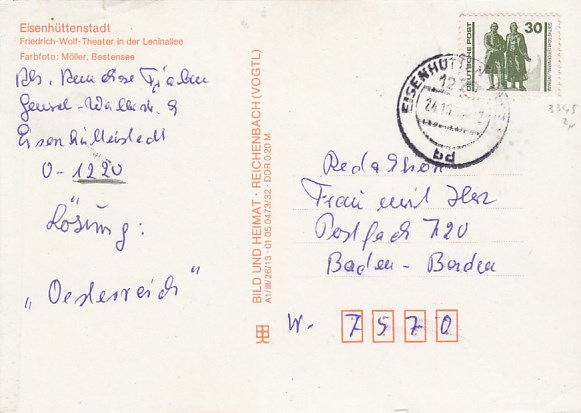 Eisenhüttenstadt
Friedrich-Wolf-Theater in der Leninallee
Farbfoto: Möller, Bestensee
Abs.
9
Eisenhüttenstadt
O-1220
Lösung:
„Oesterreich"
BILD UND HEIMAT · REICHENBACH (VOGTL)
A1/III/26/13 · 01 05 0473/32 · DDR 0,20 M
DEUTSCHE POST
30
EISENHÜTT
122
pq
3345
Redaktion
Frau mit Herz
Postfach 720
Baden-Baden
W- 7570